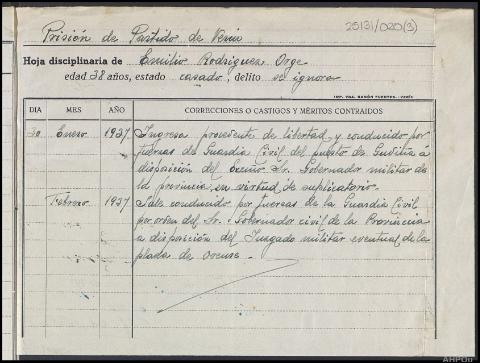 25131/020(3)
Prisión de Partido de Verín
Hoja disciplinaria de Emilio Rodríguez Orge
edad 38 años, estado casado, delito se ignora
IMP. VDA. RAMÓN FUENTES.-VERÍN
DIA MES AÑO CORRECCIONES O CASTIGOS Y MÉRITOS CONTRAIDOS
30 Enero 1937 Ingresa procedente de libertad y conducido por
fuerzas de Guardia Civil del puesto de Gudiña á
disposición del Excmo Sr. Gobernador militar de
la provincia, en virtud de suplicatorio.
Febrero 1937 Sale conducido por fuerzas de la Guardia Civil
por orden del Sr. Gobernador civil de la Provincia
a disposición del Juzgado militar eventual de la
plaza de Orense.
AHPOu